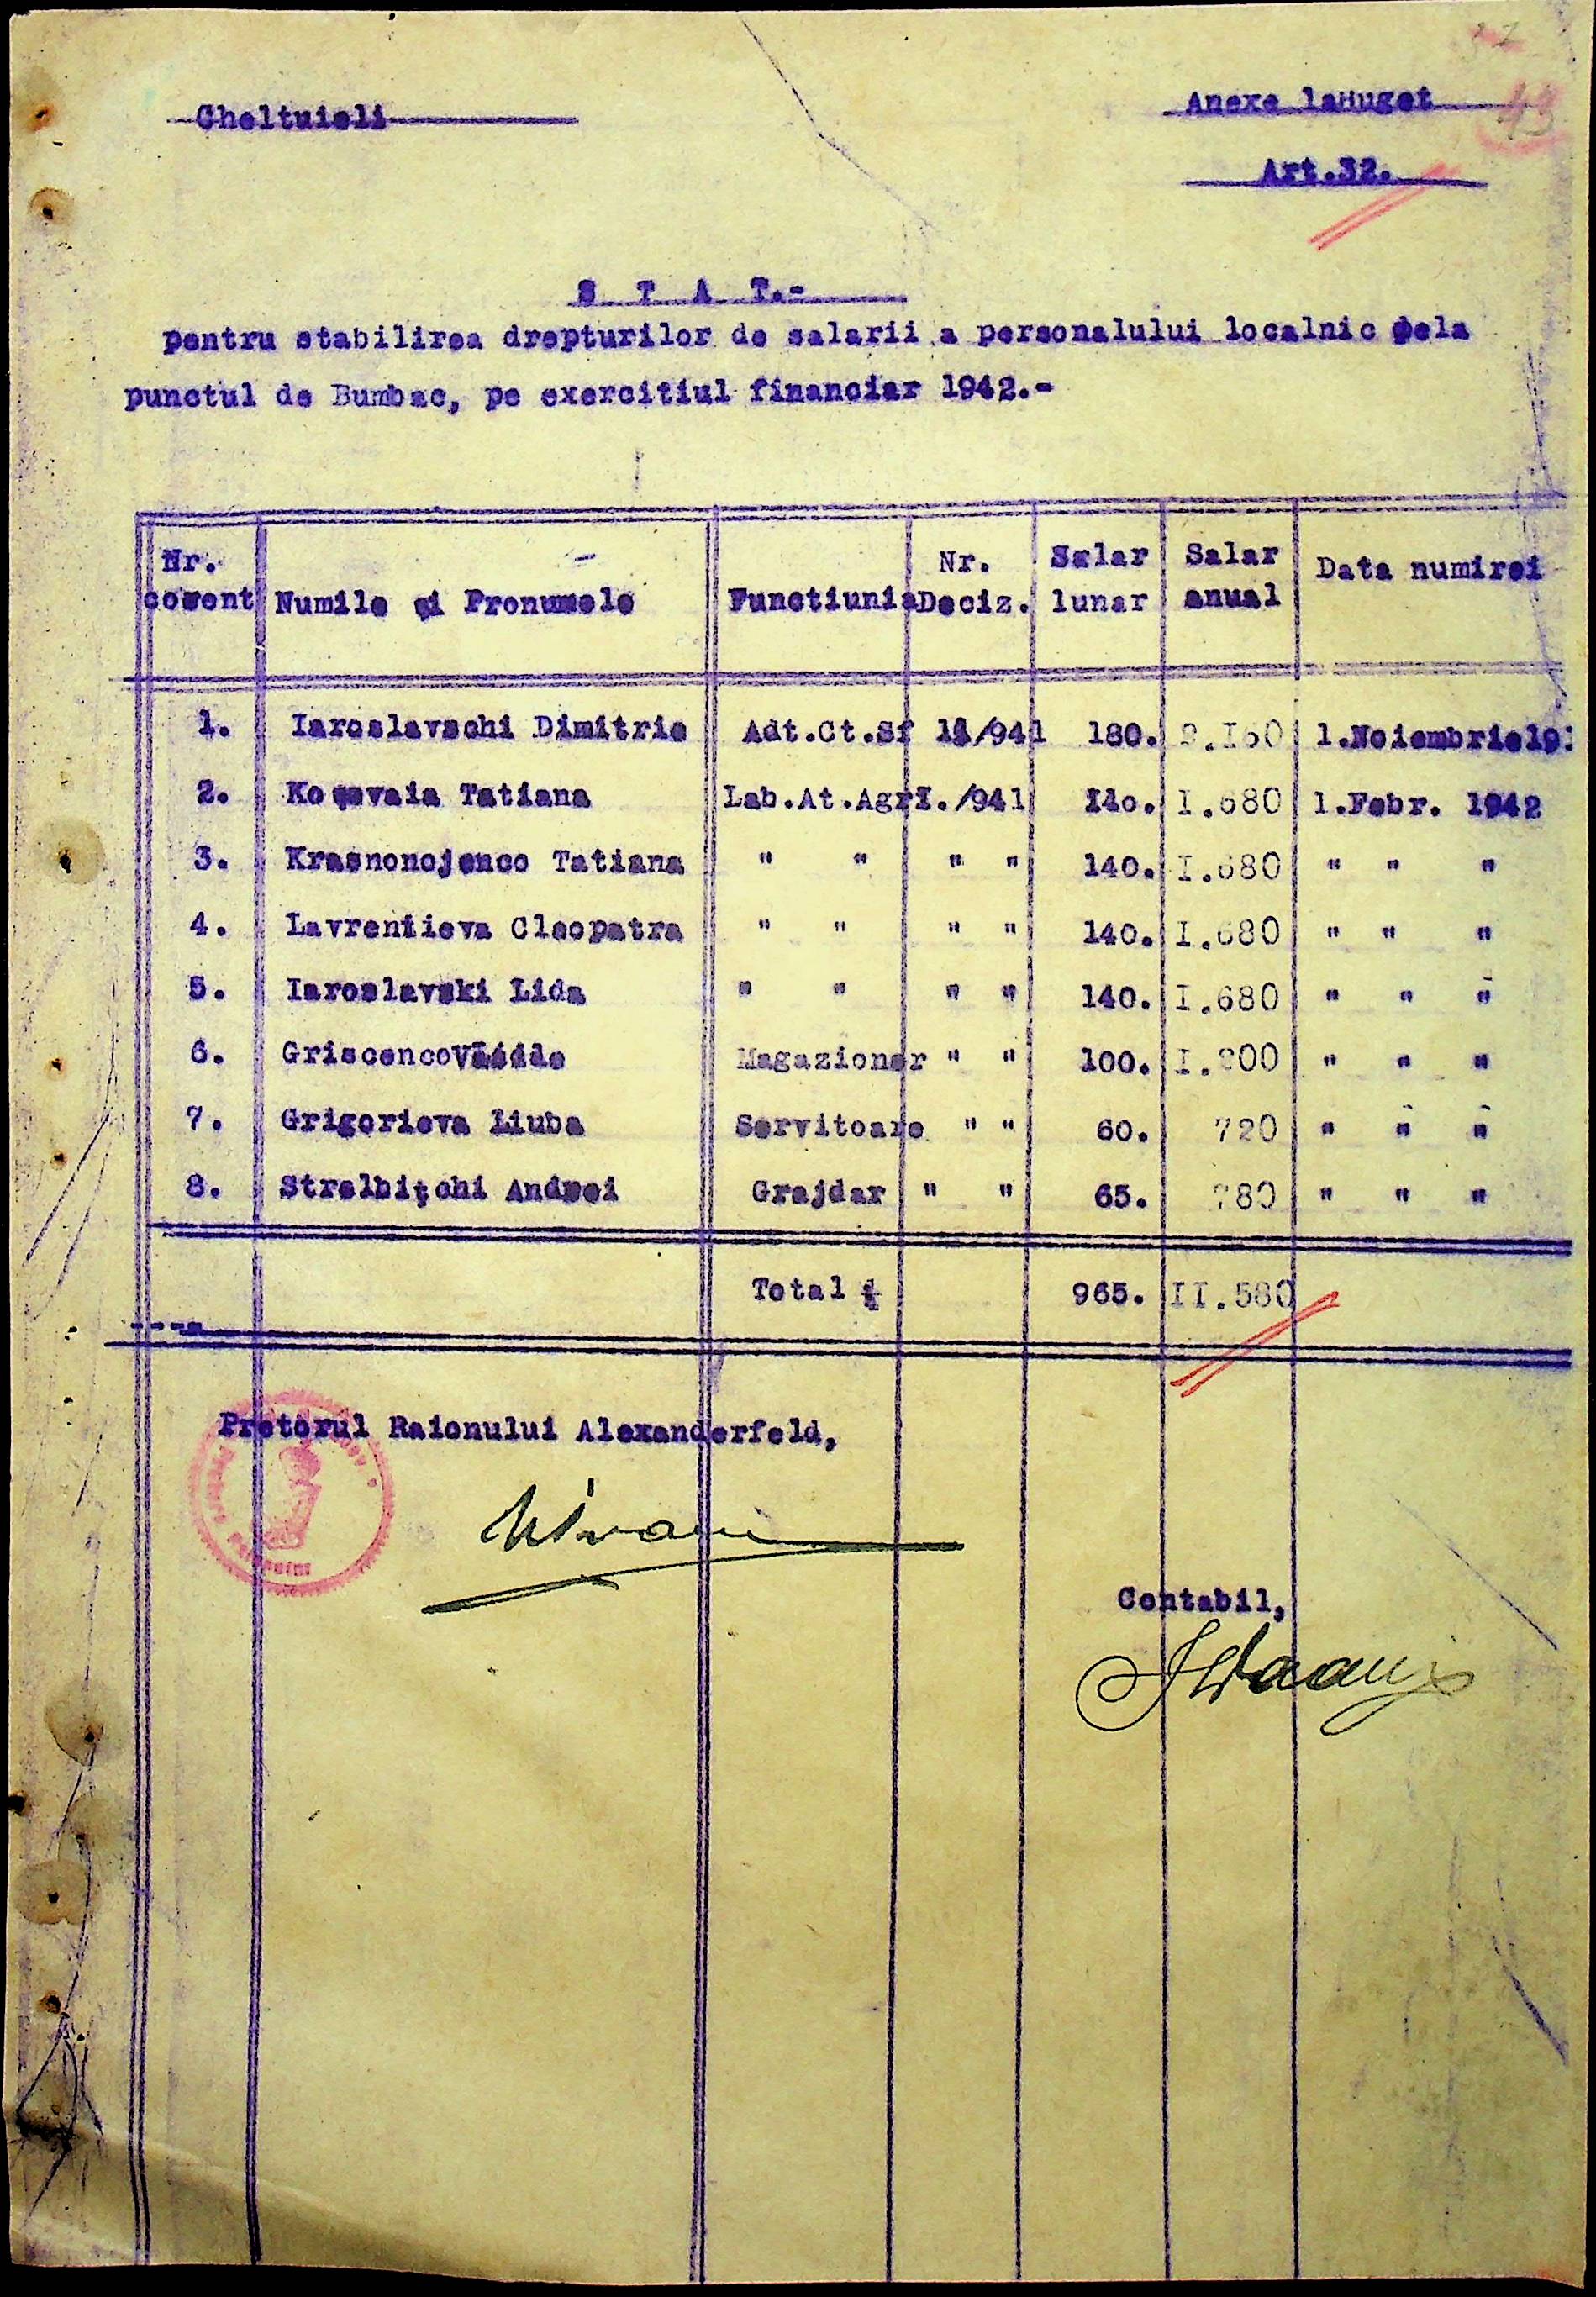 Cheltuieli
Anexe laBuget
Art.32.
S T A T.-
pentru stabilirea drepturilor de salarii a personalului localnic dela
punctul de Bumbac, pe exercitiul financiar 1942.-
Nr. corent Numile și Pronumele Functiunia Nr. Deciz. Salar lunar Salar anual Data numirei
1. Iaroslavschi Dimitrie Adt.Ct.Sf /941 180. 2.160 1.Noiembrie19
2. Tatiana Lab.At.Agr I./941 I4o. I.680 1.Febr. 1942
3. Krasnonojenco Tatiana " " " " 140. I.680 " " "
4. Lavrentieva Cleopatra " " " " 140. I.680 " " "
5. Iaroslavski Lida " " " " 140. I.680 " " "
6. Griscenco Magazioner " " 100. I.200 " " "
7. Grigorieva Liuba Servitoare " " 60. 720 " " "
8. Strelbiţchi Andrei Grajdar " " 65. 780 " " "
Total 965. II.580
Pretorul Raionului Alexanderfeld,
Contabil,